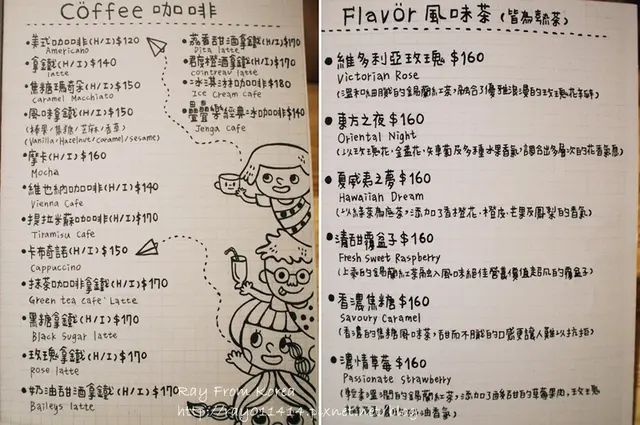 Cöffee 咖啡
美式咖啡(H/I)$120
Americano
拿鐵(H/I)$140
latte
焦糖瑪奇朵(H/I)$150
caramel Macchiato
風味拿鐵(H/I)$150
(榛果/焦糖/芝麻/香草)
(Vanilla/Hazelnut/caramel/sesame)
摩卡(H/I)$160
Mocha
維也納咖啡(H/I)$140
Vienna Cafe
提拉米蘇咖啡(H/I)$170
Tiramisu Cafe
卡布奇諾(H/I)$150
Cappuccino
抹茶咖啡拿鐵(H/I)$170
Green tea cafe Latte
黑糖拿鐵(H/I)$170
Black Sugar latte
玫瑰拿鐵(H/I)$170
Rose latte
奶油甜酒拿鐵(H/I)$170
Baileys latte
荔香甜酒拿鐵(H/I)$170
Dita latte
君度橙酒拿鐵(H/I)$170
cointreau latte
冰淇淋咖啡(H/I)$180
Ice Cream Cafe
疊疊樂經典冰咖啡$140
Jenga Cafe
Flavör 風味茶 (皆為熱茶)
維多利亞玫瑰 $160
Victorian Rose
(溫和細膩的錫蘭紅茶,融合3優雅浪漫的玫瑰花香)
東方之夜 $160
Oriental Night
(以玫瑰花、金盞花、矢車菊及多種水果香氣,調合出多層次的花香氣息)
夏威夷之夢 $160
Hawaiian Dream
(以綠茶為底茶,添加了香橙花、橙皮、芒果及鳳梨的香氣)
清甜覆盆子 $160
Fresh Sweet Raspberry
(上等的錫蘭紅茶融入風味絕佳營養價值超凡的覆盆子)
香濃焦糖 $160
Savoury Caramel
(香濃的焦糖風味茶,甜而不膩的口感更讓人難以抗拒)
濃情草莓 $160
Passionate Strawberry
錫蘭紅茶,添加了酸甜的草莓果肉,玫瑰
油香氣)
Ray From Korea